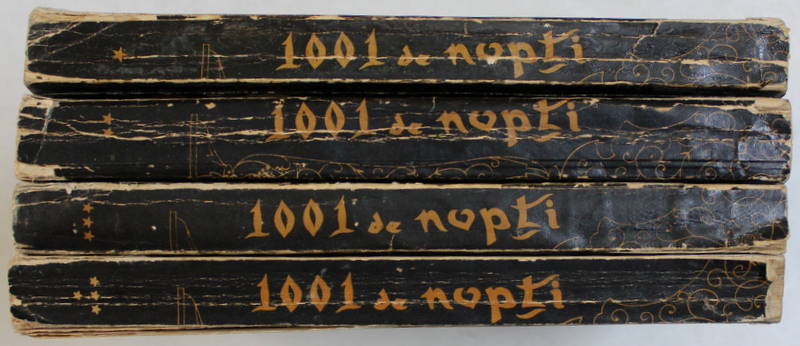 1001 de nopţi
1001 de nopţi
1001 de nopţi
1001 de nopţi